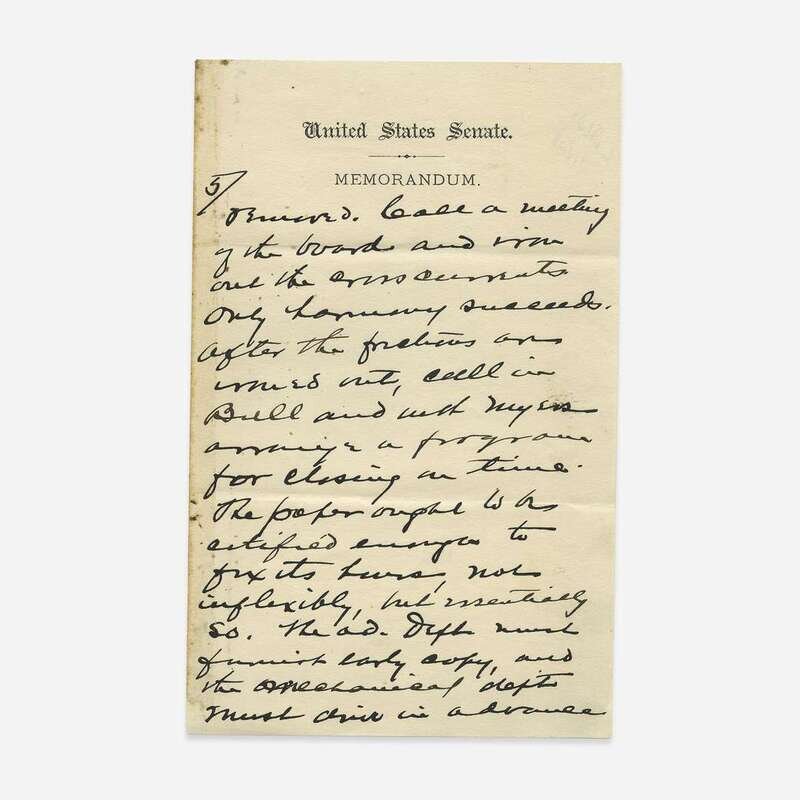 United States Senate.
MEMORANDUM.
5/
removed. Call a meeting
of the board and iron
out the crosscurrents
Only harmony succeeds.
After the frictions are
ironed out, call in
Bull and with Myers
arrange a program
for closing on time.
The paper ought to be
enough to
fix its hours, not
inflexibly, but essentially
so. The ad. Dept must
furnish early copy, and
the mechanical dept
must drive in advance